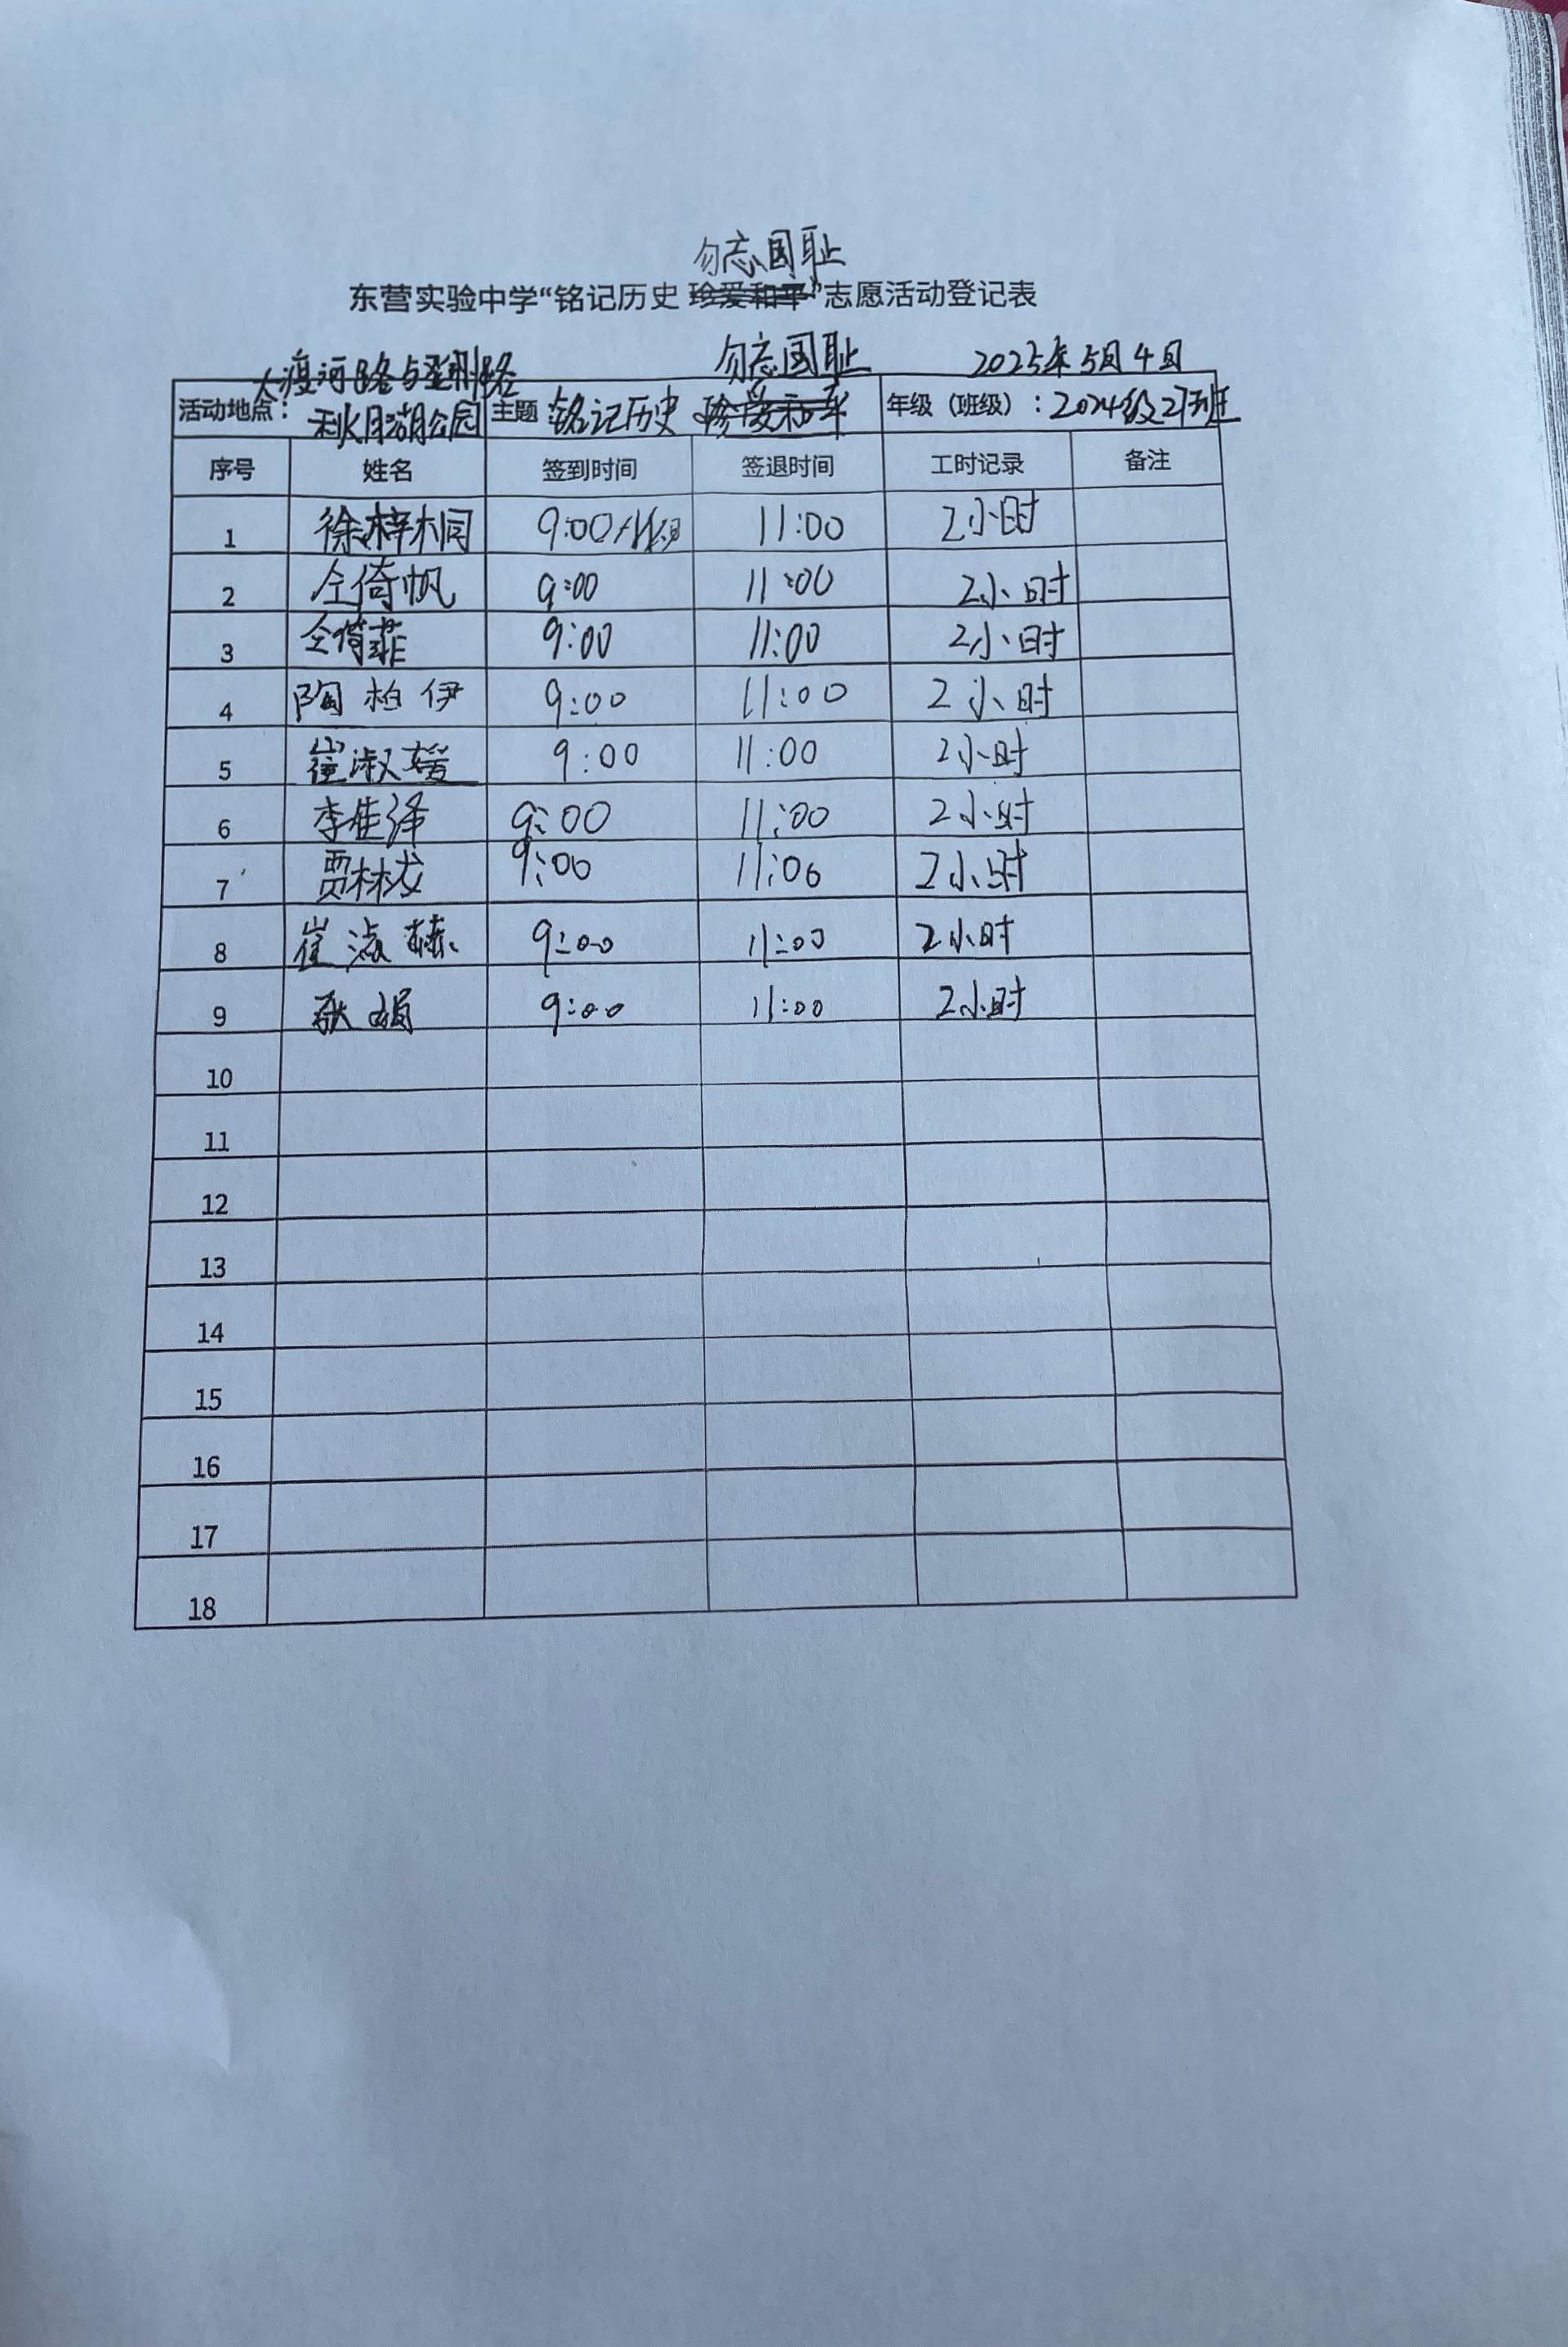 勿忘国耻
东营实验中学“铭记历史 珍爱和平”志愿活动登记表
大渡河路与 路 勿忘国耻 2025年5月4日
活动地点： 秋月湖公园 主题 铭记历史 珍爱和平 年级（班级）：2024级21班
序号 姓名 签到时间 签退时间 工时记录 备注
1 徐梓桐 9:00 11:00 2小时
2 仝倚帆 9:00 11:00 2小时
3 仝倚菲 9:00 11:00 2小时
4 陶柏伊 9:00 11:00 2小时
5 崔淑媛 9:00 11:00 2小时
6 李佳泽 9:00 11:00 2小时
7 贾林龙 9:00 11:00 2小时
8 崔淑赫 9:00 11:00 2小时
9 娟 9:00 11:00 2小时
10
11
12
13
14
15
16
17
18